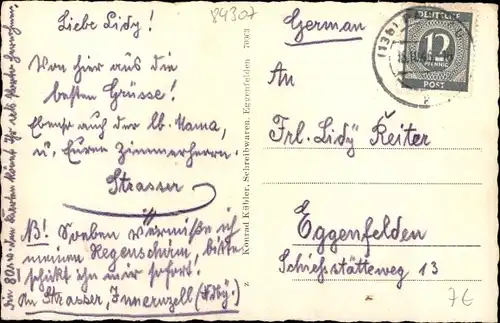 84307
Liebe Lidy!
Von hier aus die
besten Grüsse!
Ebenso auch der lb. Mama,
u. Euren Zimmerherrn.
Strasser
NB! Soeben vermisse ich
meinen Regenschirm, bitte
schickt ihn mir sofort!
An Strasser, Innernzell (Ndby.)
z Konrad Köhler, Schreibwaren, Eggenfelden 7093
German
(13b)
DEUTSCHE
12
PFENNIG
POST
An
Frl. Lidy Reiter
Eggenfelden
Schießstätteweg 13
7€